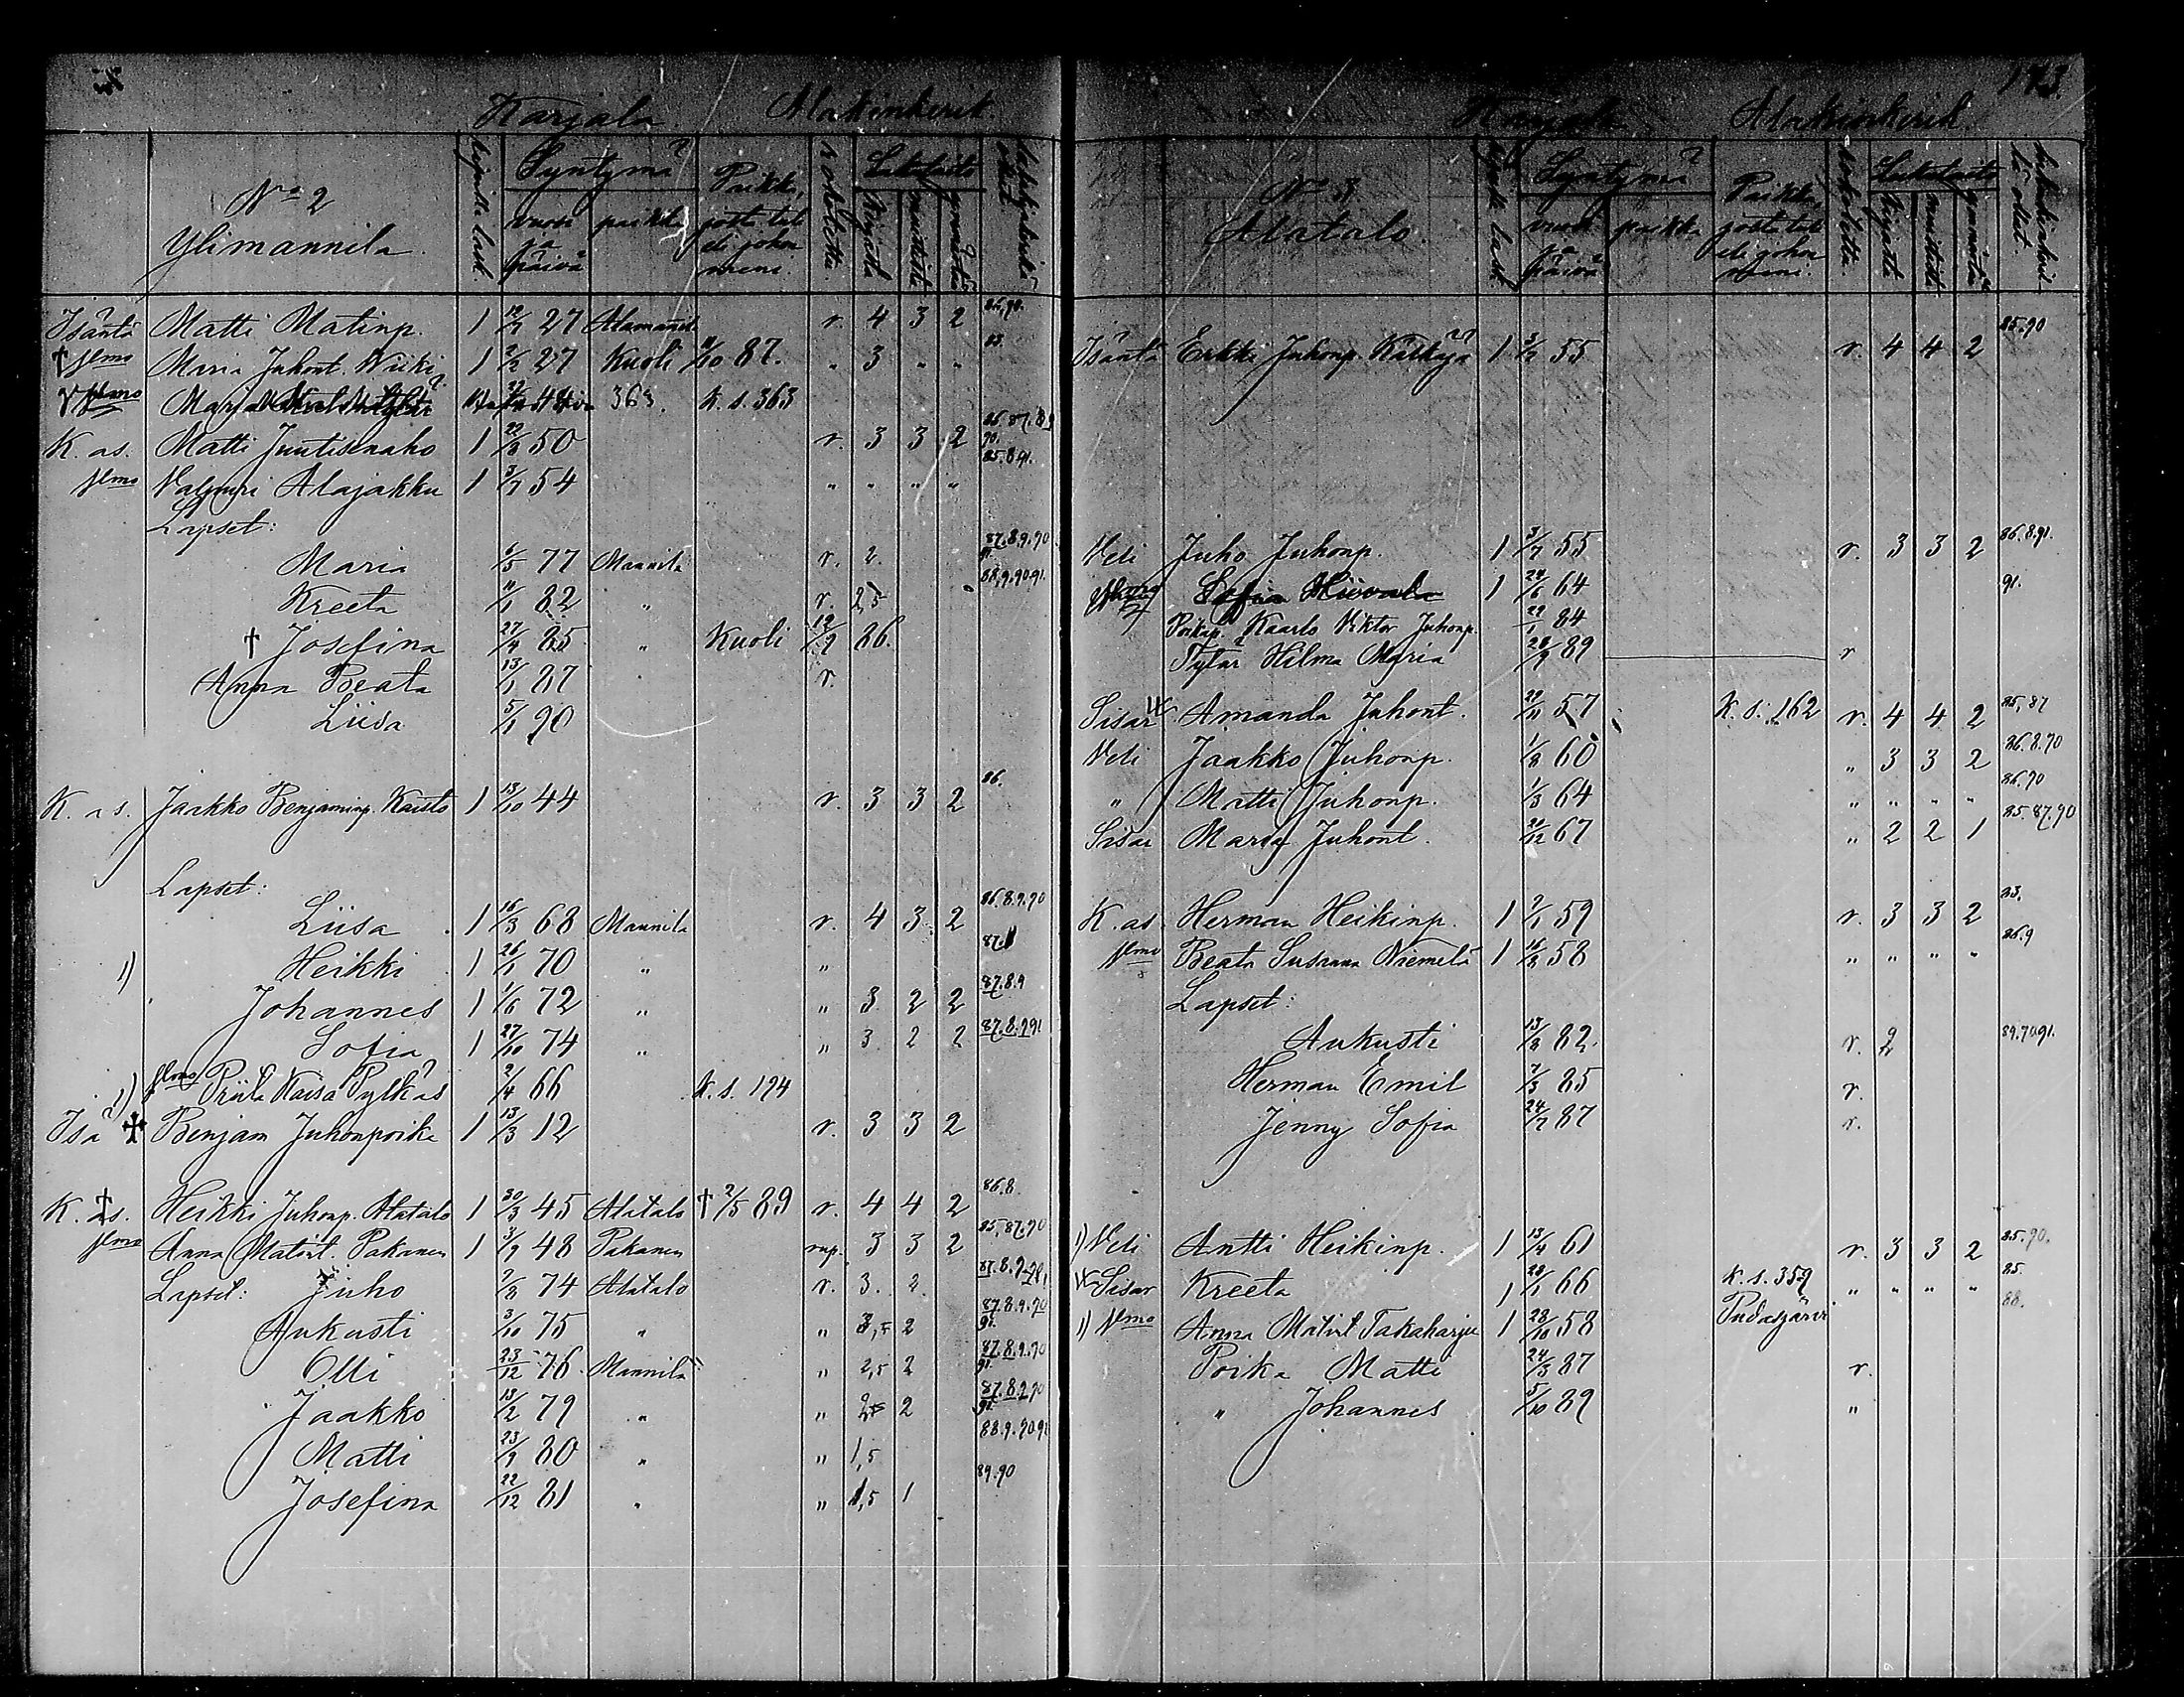 Karjala Alakinkerit.
No 2
Ylimannila.
Syntymä
vuosi ja päivä
paikka
Paikka, josta tuli eli johon meni.
rokotettu
Lukutaito
kirjasta
muistista
ymmärtä
Isäntä Matti Matinp. 1 27 Alamannil. r. 4 3 2 86,90.
† Vmo Maria Juhont. Niiki 1 2/2 27 Kuoli 11/10 87. " 3 " " 85.
Vmo Marja 363. K. s. 363
K. as. Matti Juutisenaho 1 22/8 50 r. 3 3 2 86.87.89 90.
Vmo Valpuri Alajakku 1 3/7 54 " " " " 85.8.91.
Lapset:
Maria 6/5 77 Mannila r. 2. 87.8.9.90 91.
Kreeta 11/1 82 " r. 2,5 88,9.90.91.
† Josefina 27/4 85 " Kuoli 12/9 86.
Anna Beata 13/1 87 " r.
Liisa 5/1 90
K. as. Jaakko Benjaminp. Kaisto 1 13/10 44 r. 3 3 2 86.
Lapset:
Liisa 1 16/3 68 Mannila r. 4 3 2 86.8.9.90
1) Heikki 1 26/1 70 " " 87.
Johannes 1 1/6 72 " " 3 2 2 87.8.9
Sofia 1 27/10 74 " " 3 2 2 87.8.9.91
1) Vmo Priita Kaisa Pylkäs 2/4 66 K. s. 194
Isä † Benjam Juhonpoika 1 13/3 12 r. 3 3 2
K. as. † Heikki Juhonp. Alatalo 1 30/3 45 Alatalo † 2/5 89 r. 4 4 2 86.8.
Vmo Anna Matint. Pakanen 1 3/9 48 Pakanen rup. 3 3 2 85,87.90
Lapset: Juho 7/8 74 Alatalo r. 3. 2. 87.8.9.
Aukusti 3/10 75 " " 3,5 2 87.8.9.90 91.
Olli 23/12 76 Mannila " 2,5 2 87.8.9.90 91.
Jaakko 13/2 79 " " 2,5 2 87.8.9.90 91.
Matti 23/9 80 " " 1,5 88.9.90.91
Josefina 22/12 81 " " 1,5 1 89.90
173.
Karjala Alakinkerit.
No 3.
Alatalo.
Syntymä
vuosi ja päivä
paikka
Paikka, josta tuli eli johon meni.
rokotettu.
Lukutaito
kirjasta
muistista
ymmärtä
Isäntä Erkki Juhonp. Kärkäjä 1 3/7 55 r. 4 4 2 85.90
Veli Juho Juhonp. 1 3/7 55 r. 3 3 2 86.8.91.
Sofia 1 24/6 64 91.
Poikap. Kaarlo Viktor Juhonp. 29/1 84
Tytär Hilma Maria 28/9 89 r
Sisar Amanda Juhont. 29/11 57 K. s. 162 r. 4 4 2 85,87
Veli Jaakko Juhonp. 1/8 60 " 3 3 2 86.8.90
" Matti Juhonp. 1/3 64 " " " " 86.90
Sisar Maria Juhont. 20/12 67 " 2 2 1 85.87.90
K. as. Herman Heikinp. 1 2/1 59 r. 3 3 2
Vmo Beata Susanna Niemelä 1 16/8 58 " " " " 86.9
Lapset:
Aukusti 13/8 82. r. 2 89.90.91.
Herman Emil 7/3 85 r.
Jenny Sofia 24/7 87 r.
1) Veli Antti Heikinp. 1 13/4 61 r. 3 3 2 85.90.
Sisar Kreeta 1 28/1 66 K. s. 359 " " " " 85.
1) Vmo Anna Matint Takaharju 1 28/10 58 Pudasjärvi 88.
Poika Matti 24/3 87 r.
" Johannes 5/10 89 "